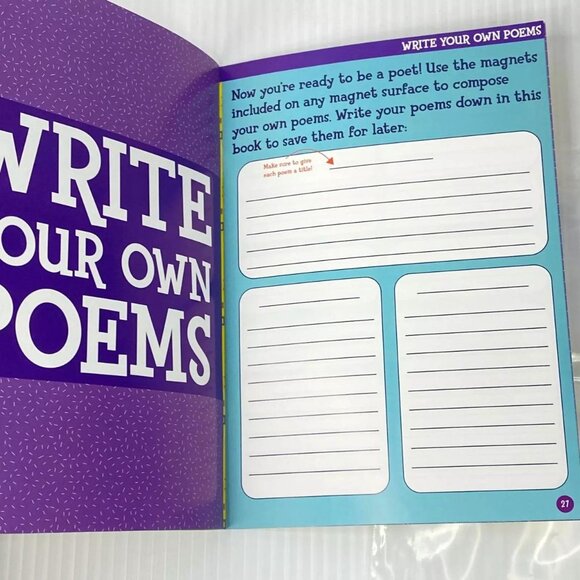 WRITE
OUR OWN
POEMS
WRITE YOUR OWN POEMS
Now you're ready to be a poet! Use the magnets
included on any magnet surface to compose
your own poems. Write your poems down in this
book to save them for later:
Make sure to give
each poem a title!
27